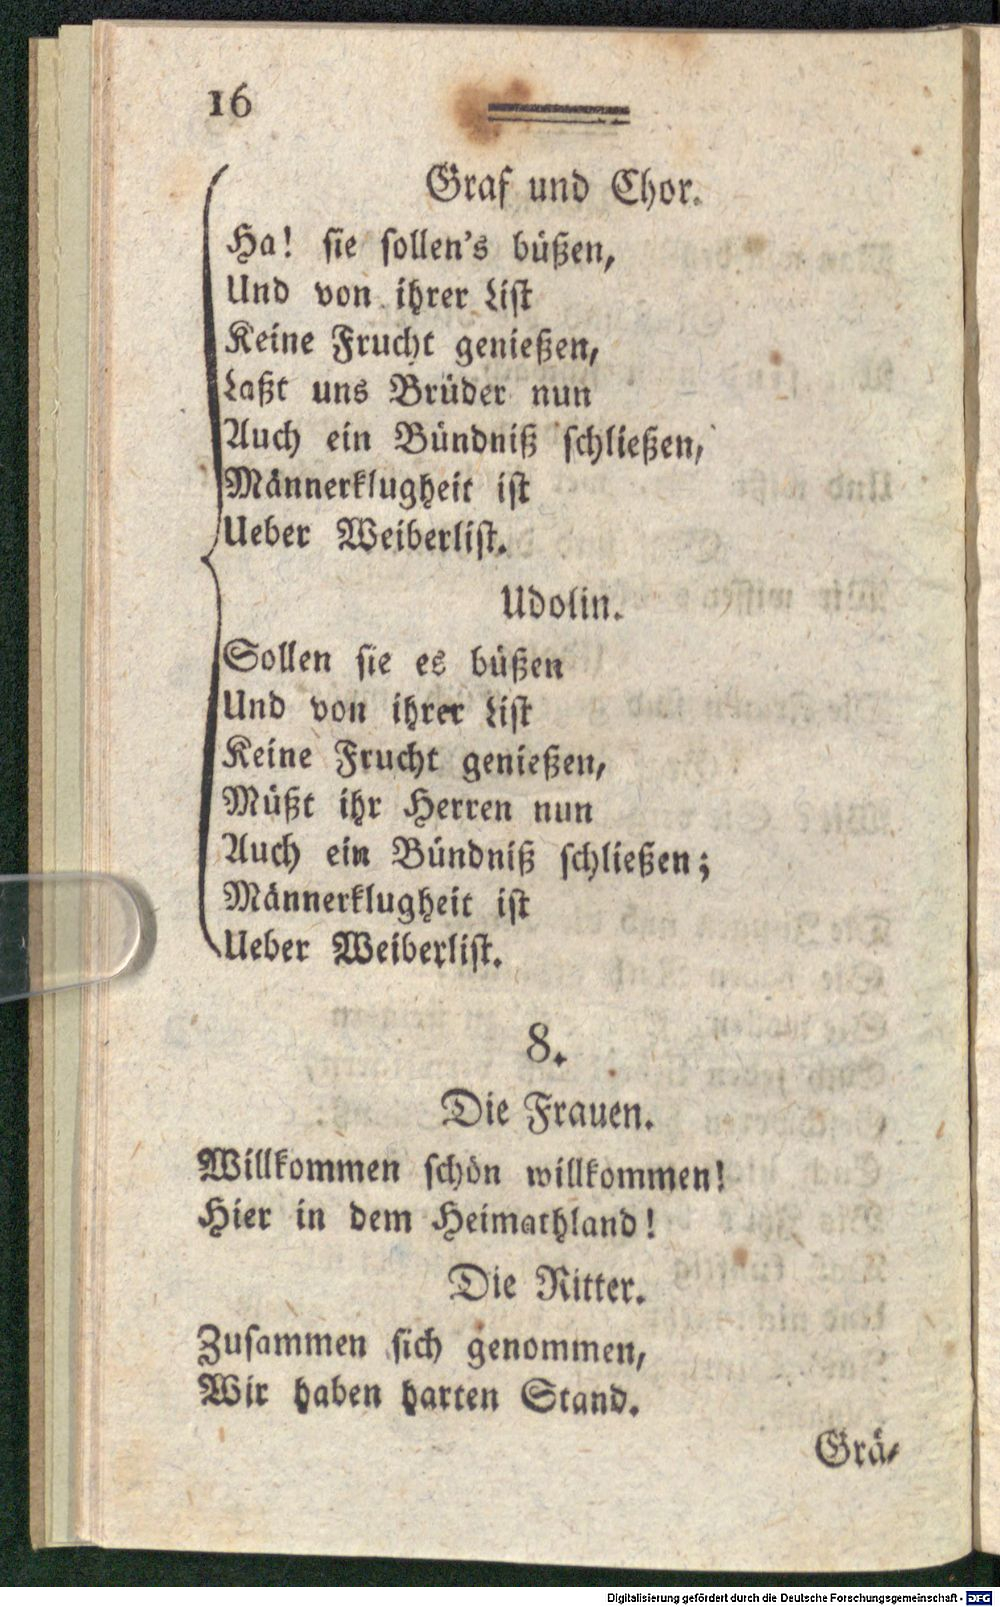 16
Graf und Chor.
Ha! sie sollen's büßen,
Und von ihrer List
Keine Frucht genießen,
Laßt uns Brüder nun
Auch ein Bündniß schließen,
Männerklugheit ist
Ueber Weiberlist.
Udolin.
Sollen sie es büßen
Und von ihrer List
Keine Frucht genießen,
Müßt ihr Herren nun
Auch ein Bündniß schließen;
Männerklugheit ist
Ueber Weiberlist.
8.
Die Frauen.
Willkommen schön willkommen!
Hier in dem Heimathland!
Die Ritter.
Zusammen sich genommen,
Wir haben harten Stand.
Grä-
Digitalisierung gefördert durch die Deutsche Forschungsgemeinschaft - DFG